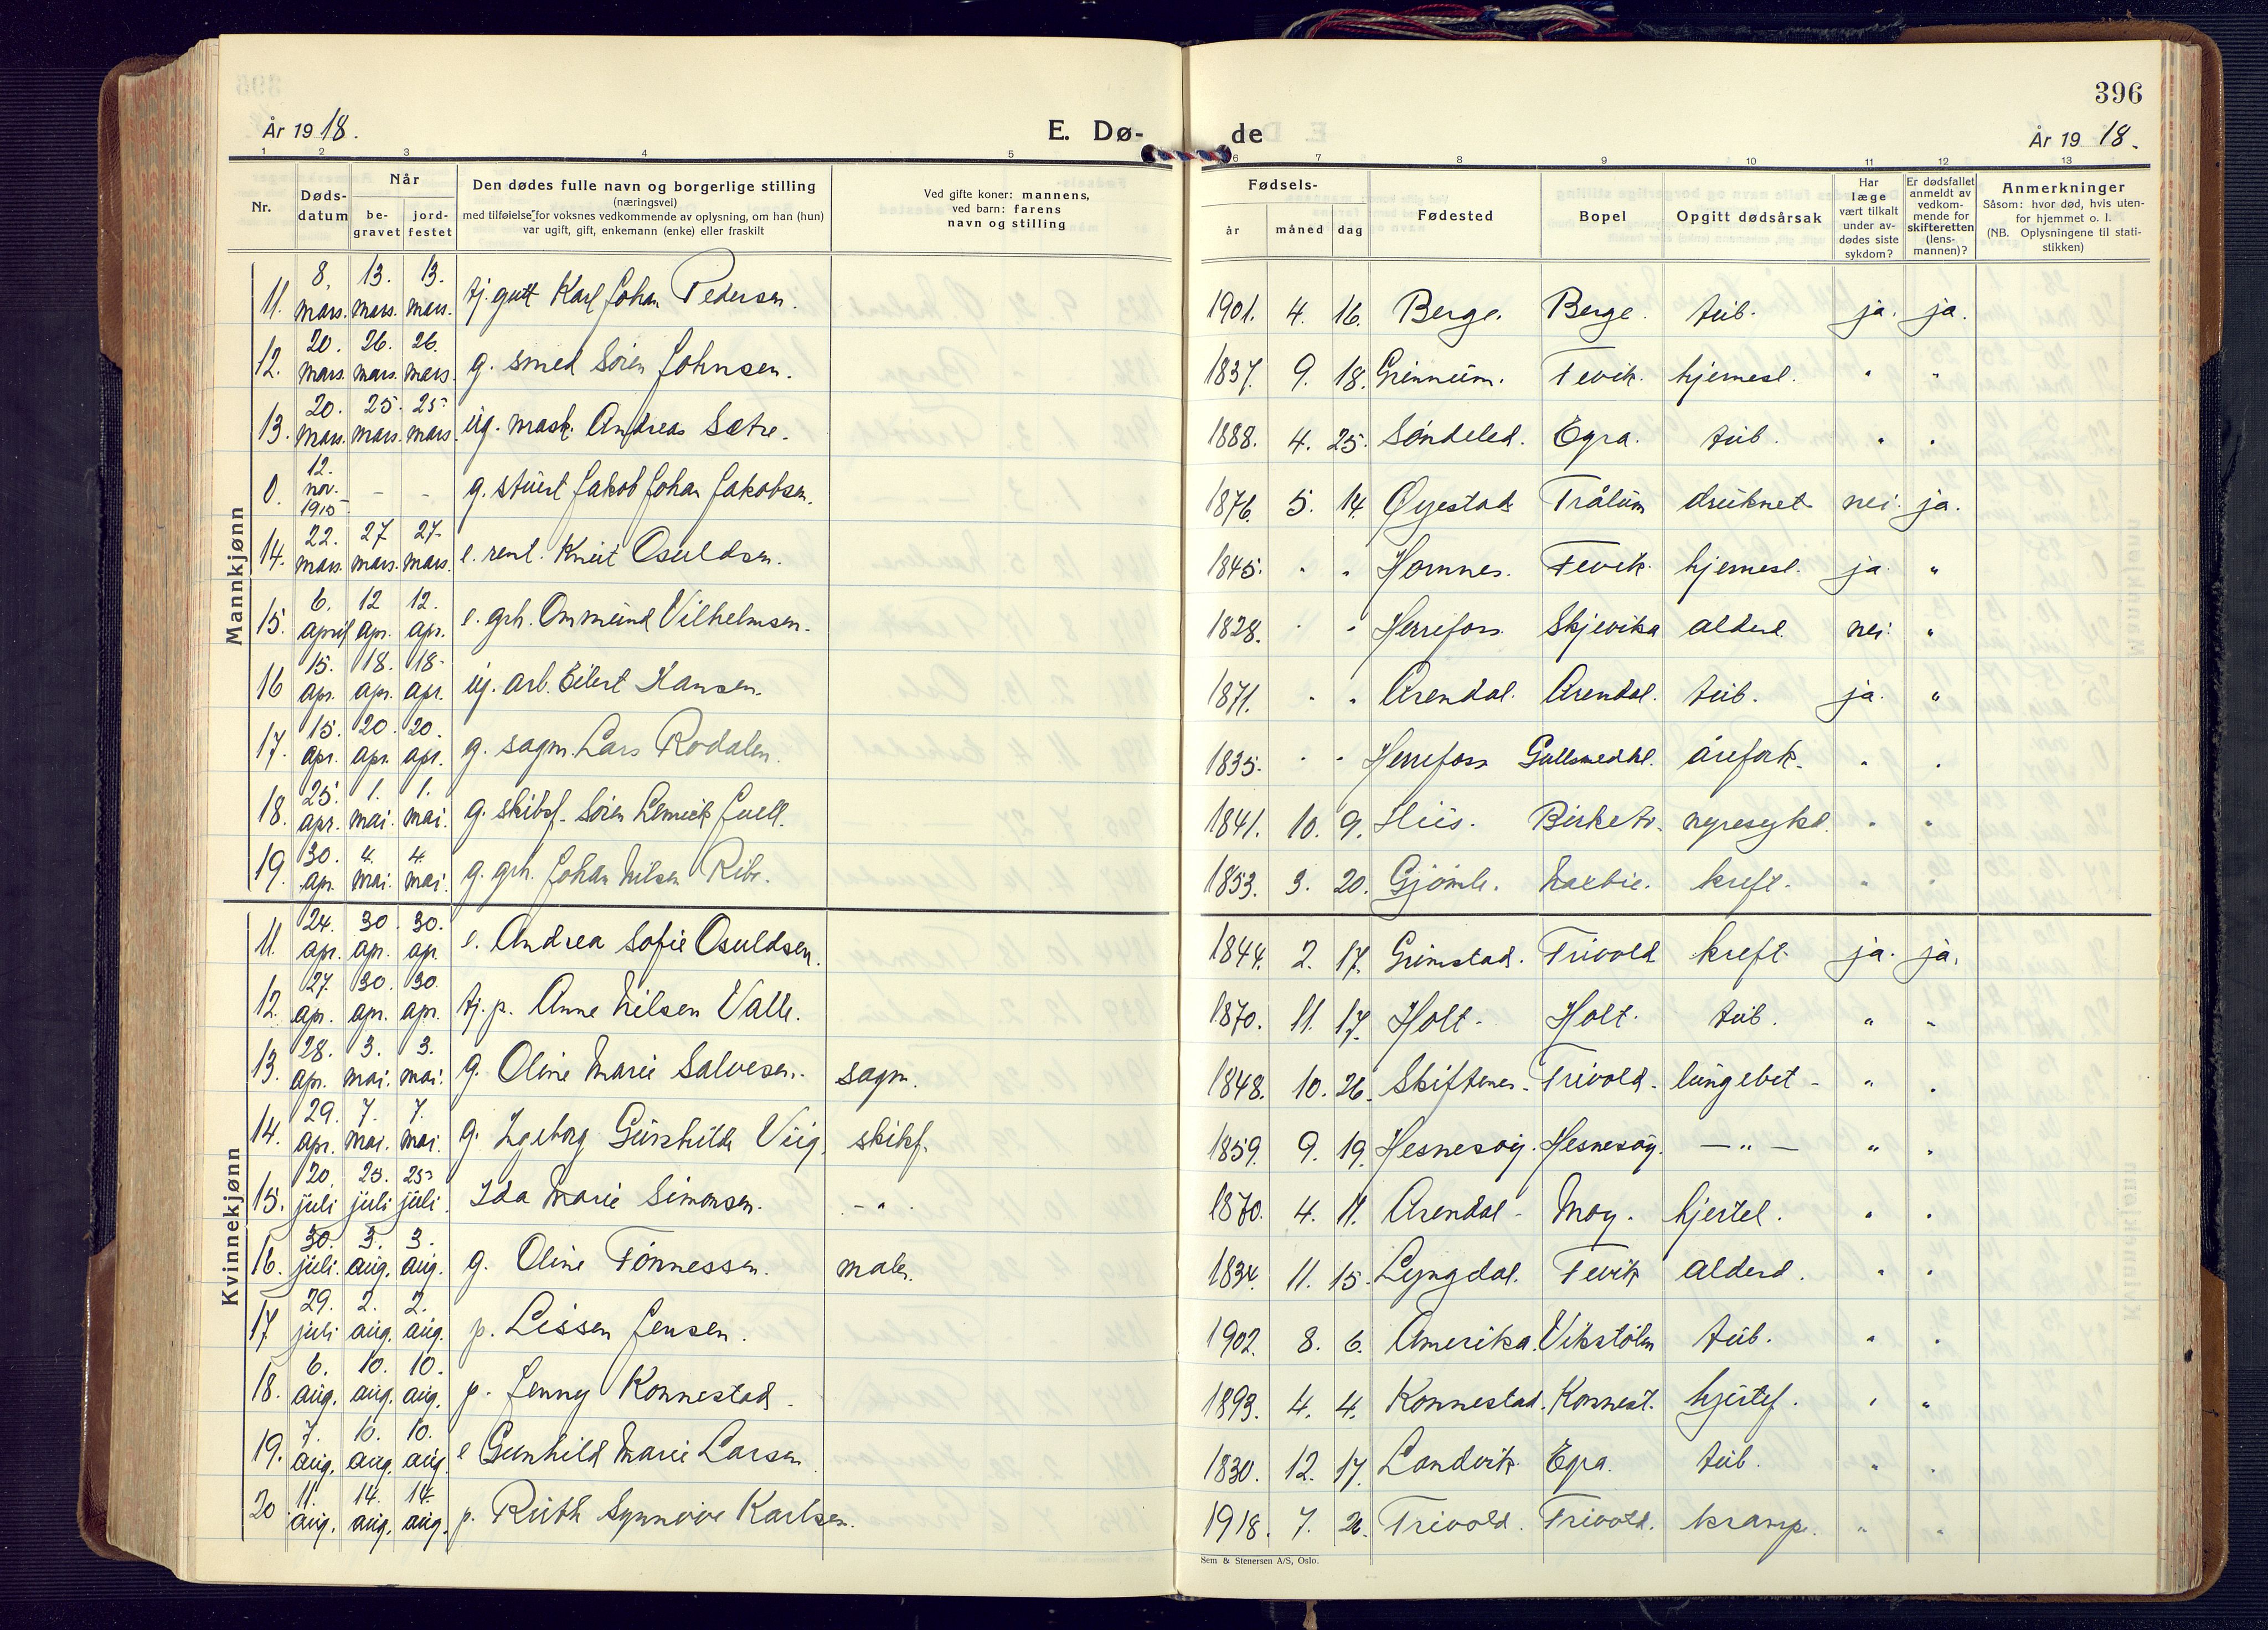 396
År 1918.
E. Dø-
de
År 1918.
1 2 3 4 5 6 7 8 9 10 11 12 13
Nr.
Døds-
datum
Når
be-
gravet
jord-
festet
Den dødes fulle navn og borgerlige stilling
(næringsvei)
med tilføielse for voksnes vedkommende av oplysning, om han (hun)
var ugift, gift, enkemann (enke) eller fraskilt
Ved gifte koner: mannens,
ved barn: farens
navn og stilling
Fødsels-
år måned dag
Fødested
Bopel
Opgitt dødsårsak
Har
læge
vært tilkalt
under av-
dødes siste
sykdom?
Er dødsfallet
anmeldt av
vedkom-
mende for
skifteretten
(lens-
mannen)?
Anmerkninger
Såsom: hvor død, hvis uten-
for hjemmet o. l.
(NB. Oplysningene til stati-
stikken)
Mannkjønn
11. 8. mars. 13. mars. 13. mars. tj. gutt Karl Johan Pedersen. 1901. 4. 16. Berge. Berge. tub. ja. ja.
12. 20. mars. 26. mars. 26. mars. g. smed Søren Johnsen. 1837. 9. 18. Grinneum. Fevik. hjernesl. " "
13. 20. mars. 25. mars. 25. mars. ug. mask. Andreas Sætre. 1888. 4. 25. Søndeled. Egra. tub. " "
0. 12. nov. 1915 - - g. stuert Jakob Johan Jakobsen. 1876. 5. 14. Øyestad Trålum druknet nei. ja.
14. 22. mars. 27 mars. 27. mars. e. rent. Knut Osuldsen. 1845. " " Hornnes. Fevik. hjernesl. ja. "
15. 6. april 12 apr. 12. apr. e. grh. Ommund Vilhelmsen. 1828. " " Herrefoss Skjevika alderd. nei. "
16 15. apr. 18. apr. 18. apr. ug. arb. Eilert Hansen. 1871. " " Arendal. Arendal. tub. ja. "
17. 15. apr. 20. apr. 20. apr. g. sagm. Lars Rodalen. 1835. " " Herrefoss Gullsmedkl. årefork. " "
18. 25. apr. 1. mai. 1. mai. g. skibsf. Søren Lemick Juell. 1841. 10. 9. Hiis. Birketv. nyresykd. " "
19. 30. apr. 4. mai. 4. mai. g. grh. Johan Nilsen Ribe. 1853. 3. 20. Gjømle. kreft. " "
Kvinnekjønn
11. 24. apr. 30. apr. 30. apr. e. Andrea Sofie Osuldsen. 1844. 2. 17. Grimstad. Trivold kreft. ja. ja.
12. 27. apr. 30. apr. 30. apr. tj. p. Anne Nilsen Valle. 1870. 11. 17. Holt. Holt. tub. " "
13. 28. apr. 3. mai. 3. mai. g. Oline Marie Salvesen. sagm. 1848. 10. 26. Skiftenes. Trivold. lungebet. " "
14. 29. apr. 7. mai. 7. mai. g. Ingeborg Gunhilde Viig. skibsf. 1859. 9. 19. Hesnesøy. Hesnesøy. — " — " "
15. 20. juli 25. juli 25. juli. Ida Marie Simonsen. - " - 1870. 4. 11. Arendal. Moy. hjertel. " "
16. 30. juli. 3. aug. 3. aug. g. Oline Tønnessen. maler. 1834. 11. 15. Lyngdal. Fevik alderd. " "
17 29. juli 2. aug. 2. aug. p. Lissen Jensen. 1902. 8. 6. Amerika. Vikstølen tub. " "
18. 6. aug. 10. aug. 10. aug. p. Jenny Konnestad. 1893. 4. 4. Konnestad. Konnest. hjertef. " "
19. 7. aug. 10. aug. 10. aug. e Gunhild Marie Larsen 1830. 12. 17. Landvik Egra. tub. " "
20 11. aug. 14. aug. 14. aug. p. Ruth Synnøve Karlsen. 1918. 7. 26. Trivold. Trivold. krampe. " "
Sem & Stenersen A/S, Oslo.